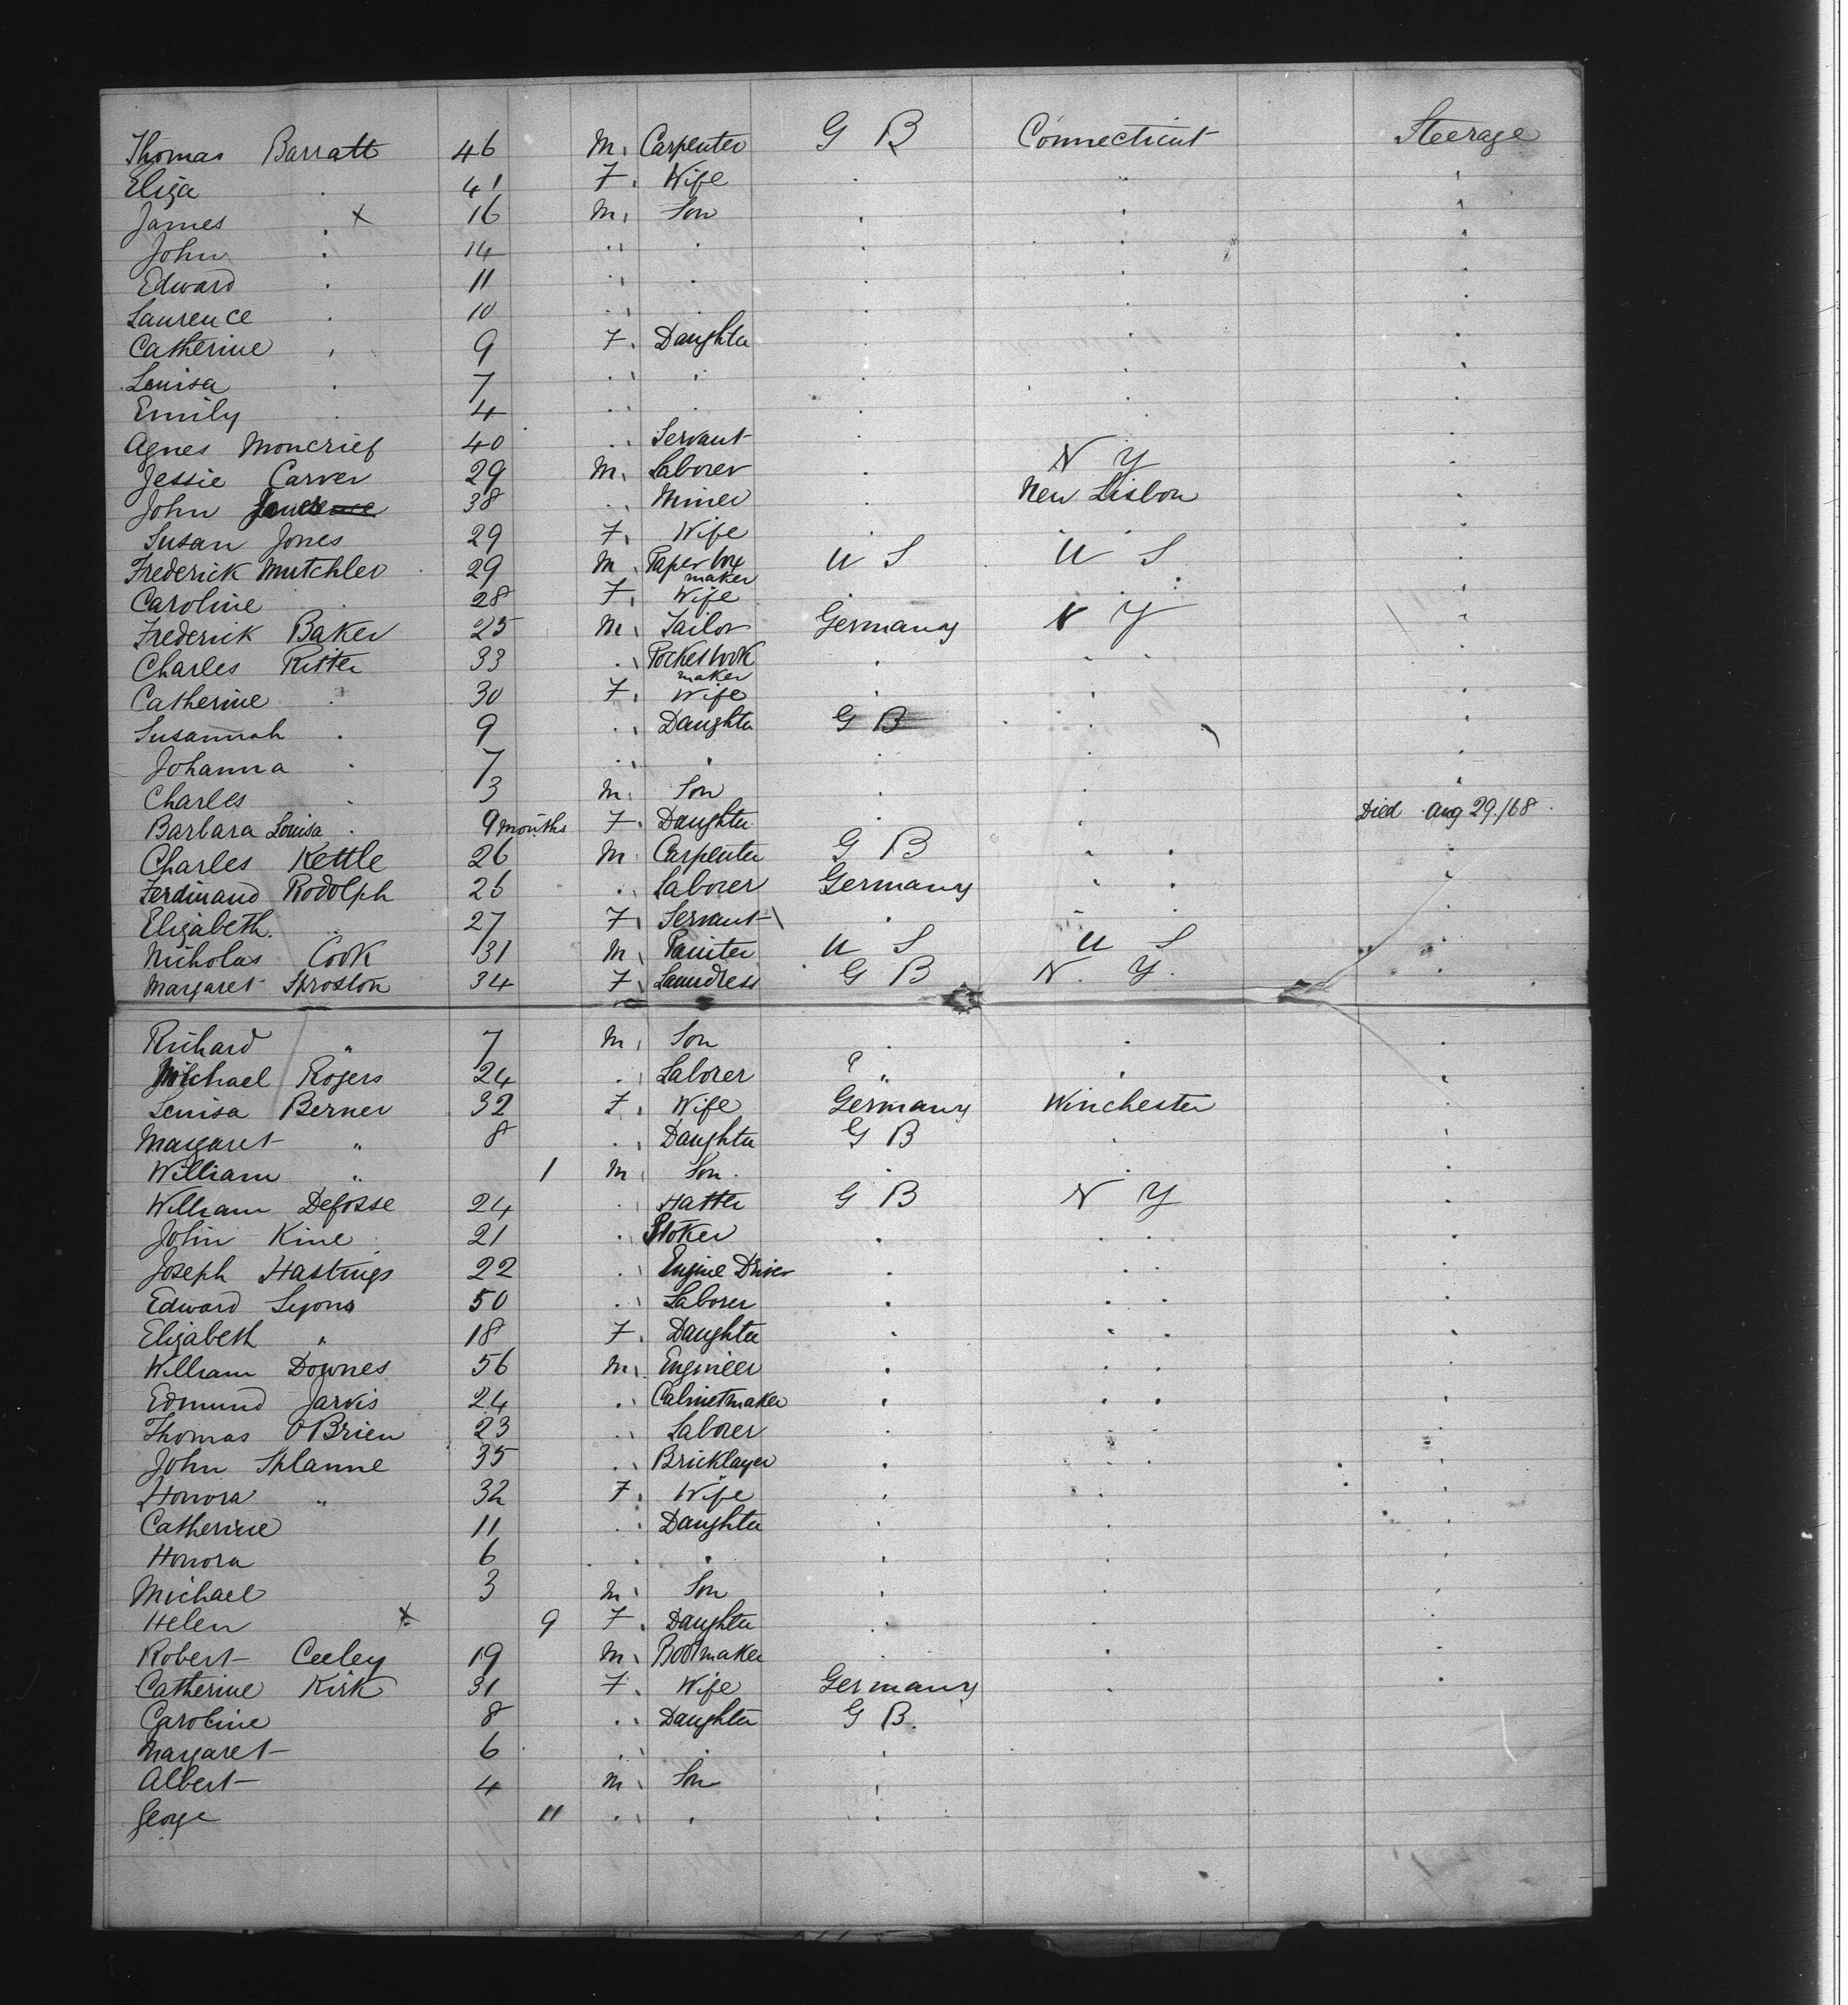 Thomas Barratt 46 M. Carpenter G B Connecticut Steerage
Eliza " 41 F. Wife " " "
James " x 16 M. Son " " "
John " 14 " " " " "
Edward " 11 " " " " "
Laurence " 10 " " " " "
Catherine " 9 F. Daughter " " "
Louisa " 7 " " " " "
Emily " 4 " " " " "
Agnes Moncrief 40 " Servant " " "
Jessie Carver 29 M. Laborer " N Y "
John 38 " Miner " New Lisbon "
Susan Jones 29 F. Wife " " "
Frederick Mutchler 29 M. Paper box maker U S U S "
Caroline " 28 F. Wife " " "
Frederick Baker 25 M. Tailor Germany N Y "
Charles Ritter 33 " Pocketbook maker " " " "
Catherine " 30 F. Wife " " "
Susannah " 9 " Daughter G B " " "
Johanna " 7 " " " " "
Charles " 3 M. Son " " "
Barbara Louisa " 9 months F. Daughter " " Died Aug 29./68
Charles Kettle 26 M Carpenter G B " " "
Ferdinand Rodolph 26 " Laborer Germany " " "
Elizabeth " 27 F. Servant " " " "
Nicholas Cook 31 M. Painter U S U S "
Margaret Sproston 34 F. Laundress G B N. Y. "
Richard " 7 M. Son " " "
Michael Rogers 24 " Laborer ? " " "
Louisa Berner 32 F. Wife Germany Winchester "
Margaret " 8 " Daughter G B " "
William " 1 M Son " " "
William Defosse 24 " Hatter G B N Y "
John Kine 21 " Stoker " " " "
Joseph Hastings 22 " Engine Driver " " " "
Edward Lyons 50 " Laborer " " " "
Elizabeth " 18 F. Daughter " " " "
William Downes 56 M. Engineer " " " "
Edmund Jarvis 24 " Cabinetmaker " " " "
Thomas O'Brien 23 " Laborer " " " "
John Splanne 35 " Bricklayer " " " "
Honora " 32 F. Wife " " "
Catherine 11 " Daughter " " "
Honora 6 " " " " "
Michael 3 M. Son " " "
Helen x 9 F. Daughter " " "
Robert Ceeley 19 M. Bootmaker " " "
Catherine Kirk 31 F. Wife Germany " "
Caroline 8 " Daughter G B.
Margaret 6 " " "
Albert 4 M. Son "
George 11 " " "